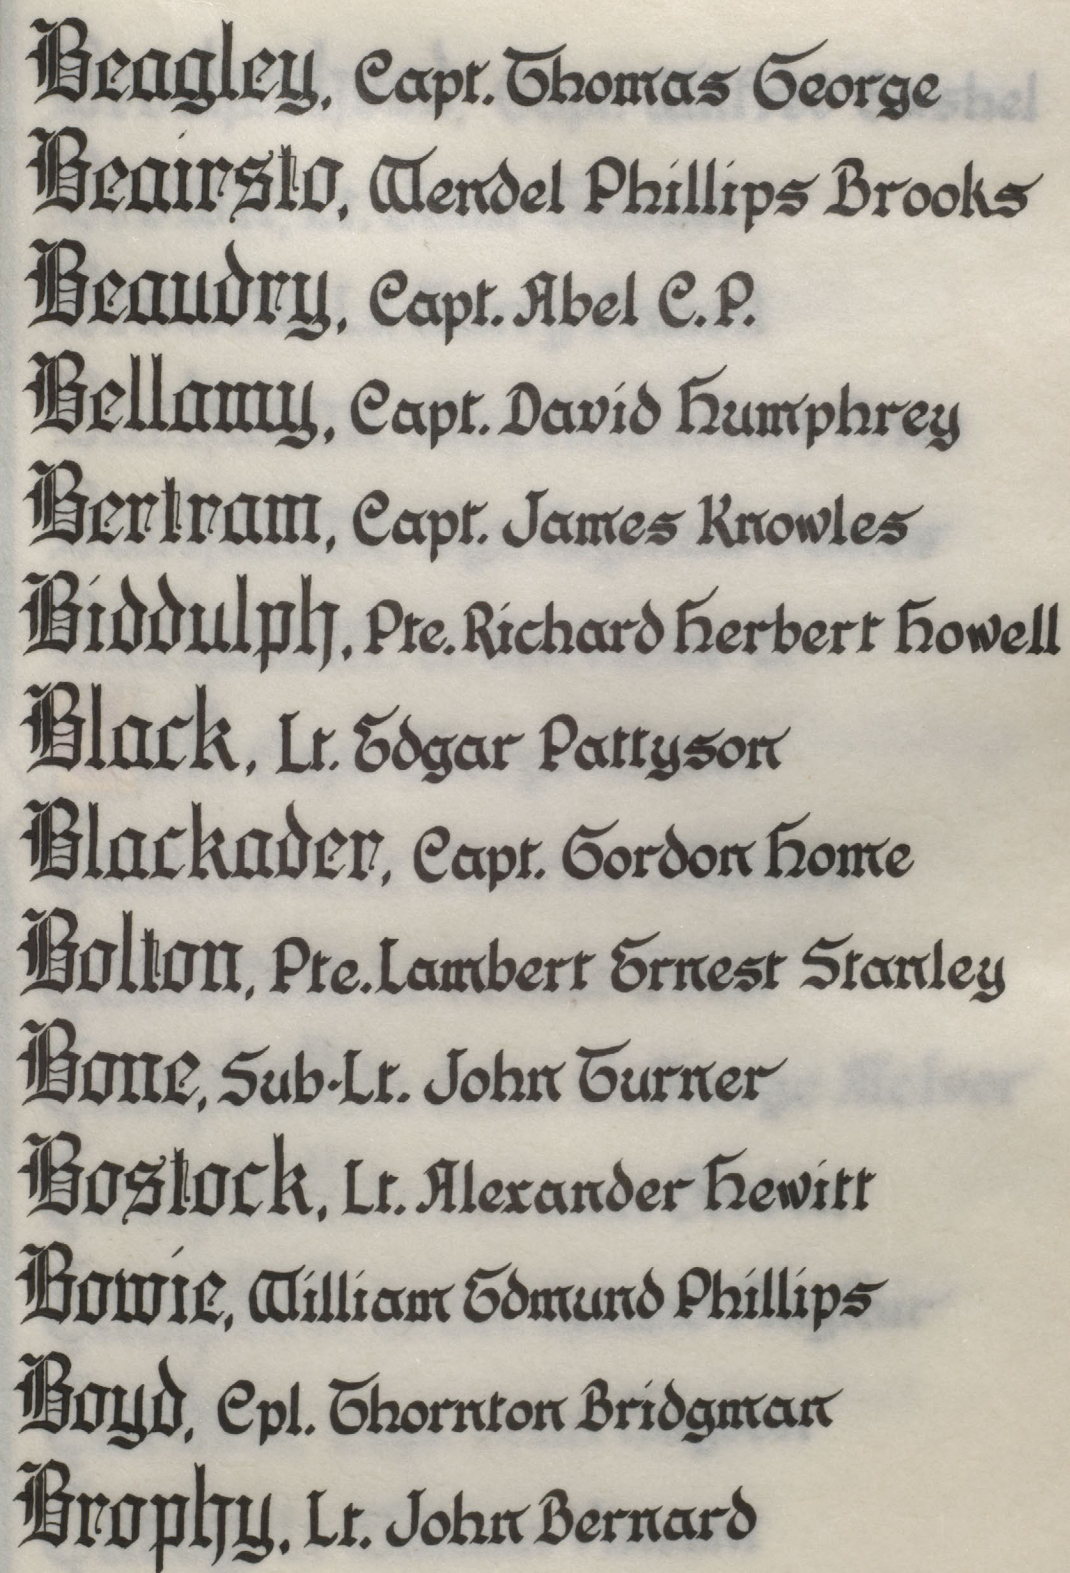 Beagley, Capt. Thomas George
Beairsto, Wendel Phillips Brooks
Beaudry, Capt. Abel C.P.
Bellamy, Capt. David Humphrey
Bertram, Capt. James Knowles
Biddulph, Pte. Richard Herbert Howell
Black, Lt. Edgar Pattyson
Blackader, Capt. Gordon Home
Bolton, Pte. Lambert Ernest Stanley
Bone, Sub-Lt. John Turner
Bostock, Lt. Alexander Hewitt
Bowie, William Edmund Phillips
Boyd, Cpl. Thornton Bridgman
Brophy, Lt. John Bernard